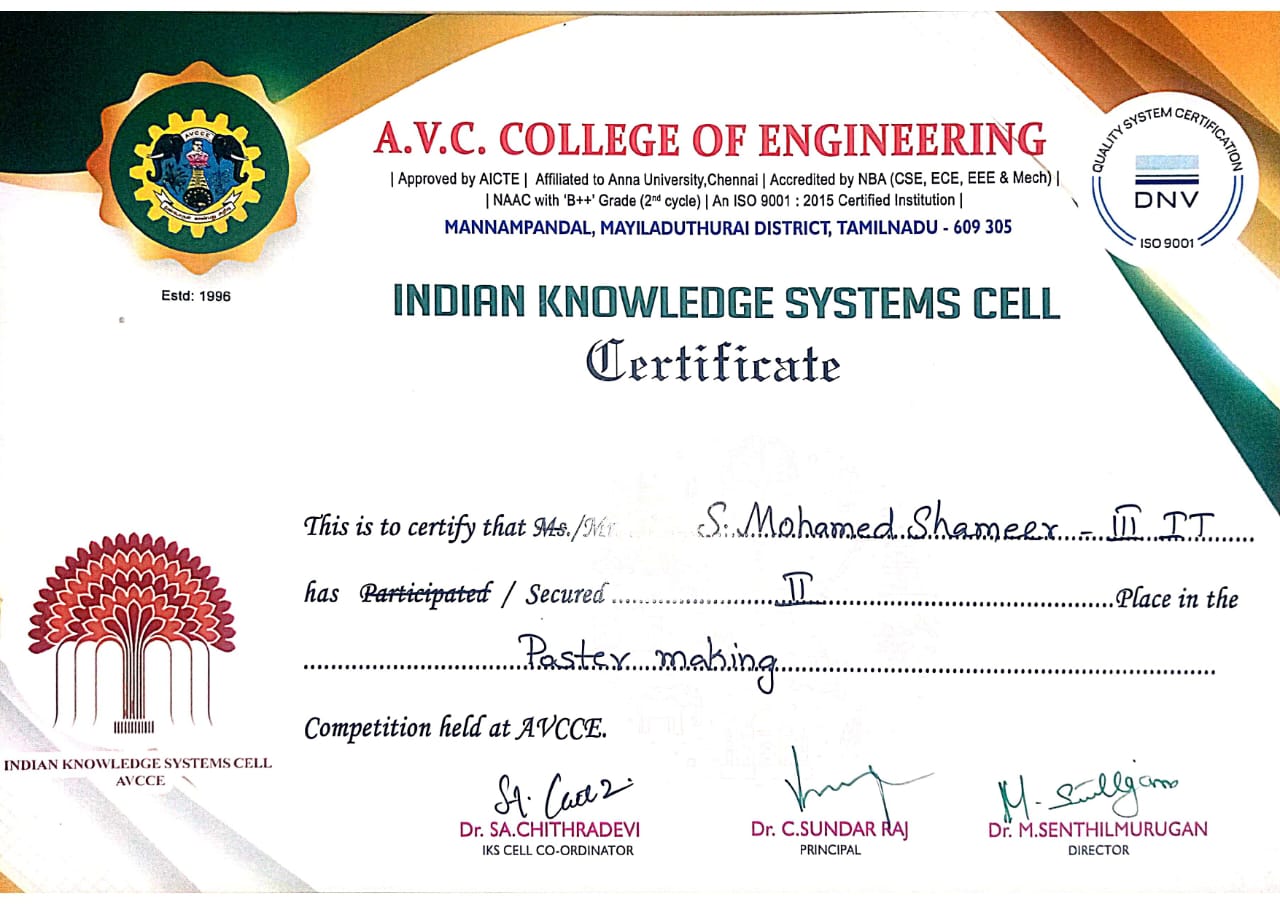 AVCCE
Estd: 1996
A.V.C. COLLEGE OF ENGINEERING
| Approved by AICTE | Affiliated to Anna University,Chennai | Accredited by NBA (CSE, ECE, EEE & Mech) |
| NAAC with 'B++' Grade (2nd cycle) | An ISO 9001 : 2015 Certified Institution |
MANNAMPANDAL, MAYILADUTHURAI DISTRICT, TAMILNADU - 609 305
QUALITY SYSTEM CERTIFICATION
DNV
ISO 9001
INDIAN KNOWLEDGE SYSTEMS CELL
Certificate
This is to certify that Ms./Mr. S. Mohamed Shameer - III IT
has Participated / Secured II Place in the
Poster making
Competition held at AVCCE.
INDIAN KNOWLEDGE SYSTEMS CELL
AVCCE
Dr. SA.CHITHRADEVI
IKS CELL CO-ORDINATOR
Dr. C.SUNDAR RAJ
PRINCIPAL
Dr. M.SENTHILMURUGAN
DIRECTOR